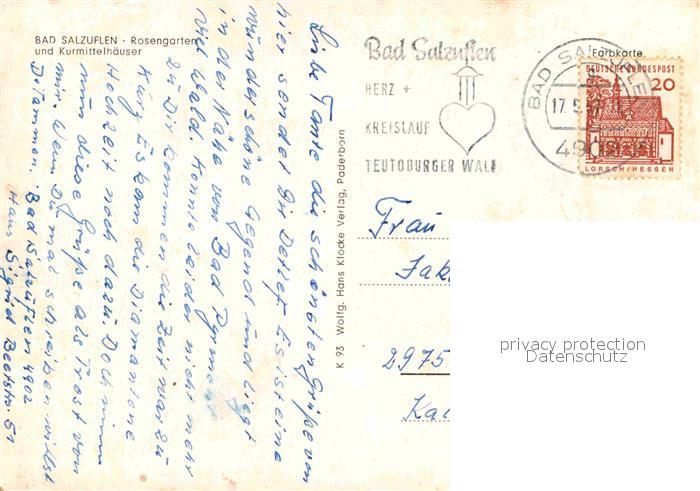 BAD SALZUFLEN · Rosengarten
und Kurmittelhäuser
Liebe Tante die schönsten Grüße von
hier sendet Dir Detlef. Es ist eine
wunderschöne Gegend und liegt
in der Nähe von Bad Pyrmont
viel Wald. Konnte leider nicht mehr
zu Dir kommen die Zeit war zu
kurz. Es kam die Diamantene
Hochzeit noch dazu. Doch nimm
nun diese Grüße als Trost von
mir. Wenn Du mal schreiben willst
D. Tammen. Bad Salzuflen 4902
Haus Sigrid Beetstr. 51
K 93 Wolfg. Hans Klocke Verlag, Paderborn
Bad Salzuflen
HERZ +
KREISLAUF
TEUTOBURGER WALD
BAD SALZUFLEN
17. 5.
4902
Farbkarte
DEUTSCHE BUNDESPOST
20
LORSCH/HESSEN
Frau
Jak
2975
Ka
privacy protection
Datenschutz